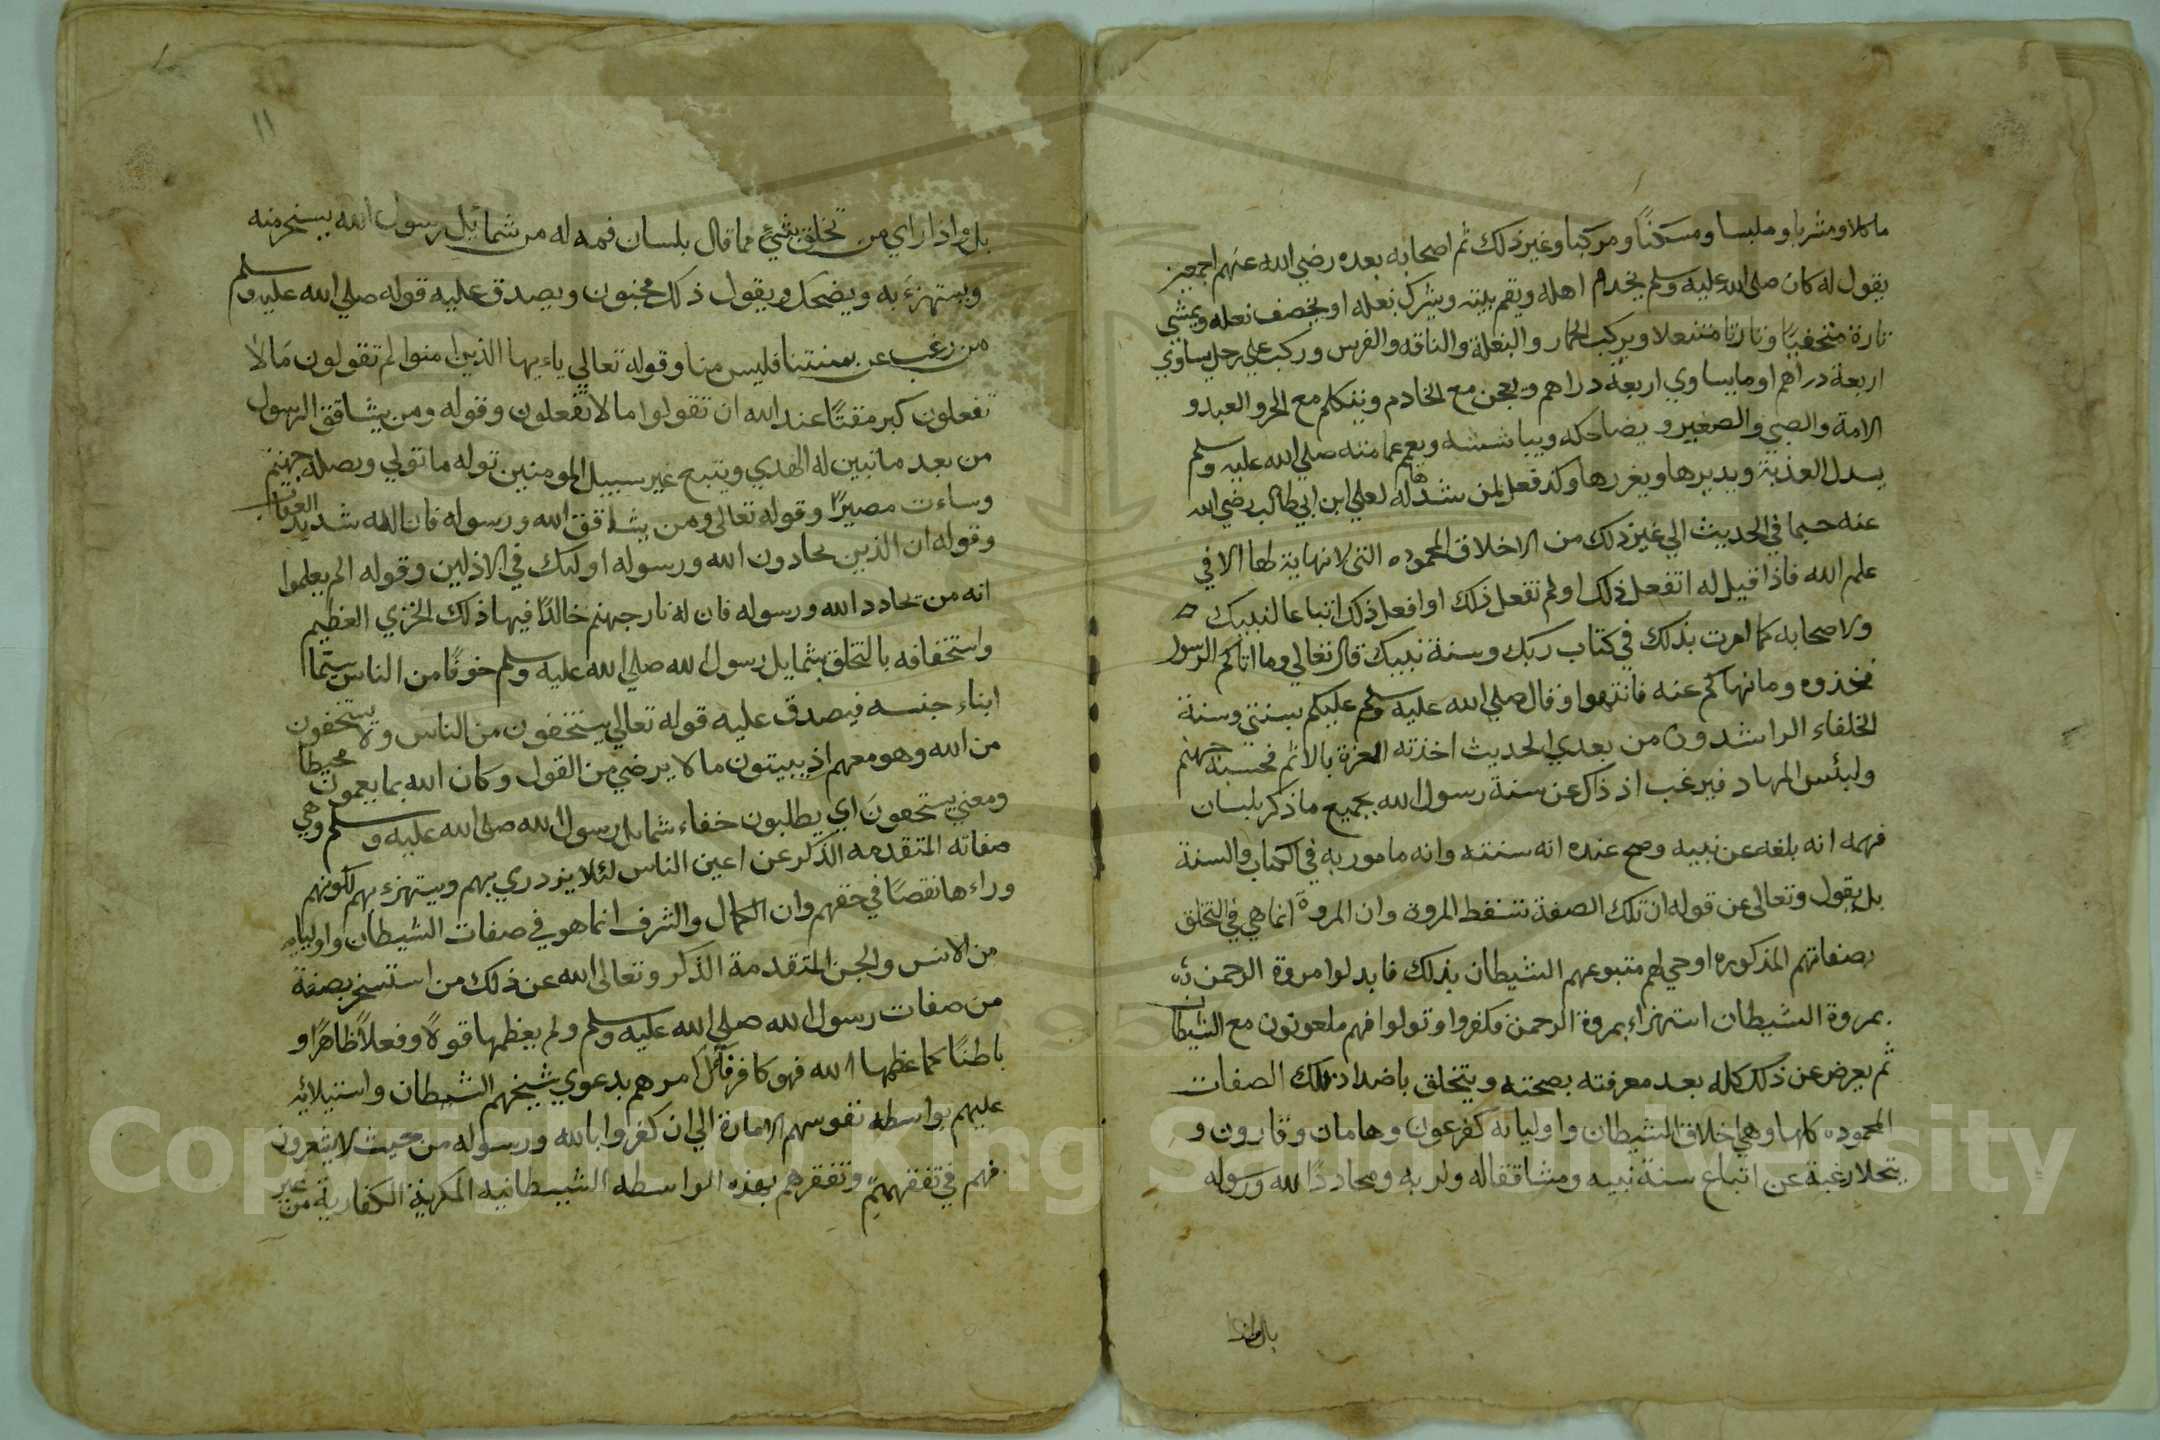 ماكلا ومشربا وملبسا ومسكنًا ومركبا وغير ذلك ثم اصحابه بعده رضي الله عنهم اجمعين
يقول له كان صلى الله عليه وسلم يخدم اهله ويقم بيته ويشرك نعله او يخصف نعله ويمشي
تارة متحفيًا وتارتا متنعلا ويركب الحمار والبغلة والناقه والفرس وركب على رحل يساوي
اربعة دراهم او ما يساوي اربعة دراهم ويعجن مع الخادم ويتكلم مع الحر والعبد و
الامة والصبي والصغير و يضاحكه ويباششه ويعم عمامته صلي الله عليه وسلم
يسدل العذبة ويديرها ويغررها وكذ فعل لمن شدها له لعلي ابن ابي طالب رضي الله
عنه حسبما في الحديث الي غير ذلك من الاخلاق المحموده التي لا نهاية لها الا في
علم الله فاذا قيل له اتفعل ذلك او لم تفعل ذلك او افعل ذلك اتباعا لنبيك
ولاصحابه كما امرت بذلك في كتاب ربك وسنة نبيك قال تعالي وما اتاكم الرسول
فخذوه وما نهاكم عنه فانتهوا وقال صلي الله عليه وسلم عليكم بسنتي وسنة
الخلفاء الراشدون من بعدي الحديث اخذته العزة بالاثم فحسبه جهنم
ولبئس المهاد فيرغب اذ ذاك عن سنة رسول الله بجميع ما ذكر بلسان
فهمه انه بلغه عن نبيه وصح عنده انه سنته وانه مامور به في الكتاب والسنة
بل يقول وتعالى عن قوله ان تلك الصفة تسقط المروة وان المروة انما هي في التخلق
بصفاتهم المذكوره اوحي لهم متبوعهم الشيطان بذلك فابدلوا مروة الرحمن
بمروة الشيطان استهزاء بمروة الرحمن فكفروا وتولوا فهم ملعونون مع الشيطان
ثم يعرض عن ذلك كله بعد معرفته بصحته ويتخلق باضداد تلك الصفات
المحموده كلها وهي اخلاق الشيطان واوليائه كفرعون وهامان وقارون و
يتحلا رغبة عن اتباع سنة نبيه ومشاققا له ولربه ومحاددًا لله ورسوله
بل واذا
١١
بل واذا راي من تخلق بشيء مما قال بلسان فهمه له من شمائيل رسول الله يسخر منه
ويستهزء به ويضحك ويقول ذلك مجنون ويصدق عليه قوله صلي الله عليه وسلم
من رغب عن سنتنا فليس منا وقوله تعالي ياءيها الذين امنوا لم تقولون مَا لا
تفعلون كبر مقتًا عند الله ان تقولوا ما لا تفعلون وقوله ومن يشاقق الرسول
من بعد ما تبين له الهدي ويتبع غير سبيل المومنين نوله ما تولي ونصله جهنم
وساءت مصيرًا وقوله تعالى ومن يشاقق الله ورسوله فان الله شديد العقاب
وقوله ان الذين يحادون الله ورسوله اولئك في الاذلين وقوله الم يعلموا
انه من يحادد الله ورسوله فان له نار جهنم خالدًا فيها ذلك الخزي العظيم
واستخفافه بالتخلق بشمايل رسول الله صلي الله عليه وسلم خوفًا من الناس سيّما
ابناء جنسه فيصدق عليه قوله تعالي يستخفون من الناس ولا يستخفون
من الله وهو معهم اذ يبيتون ما لا يرضي من القول وكان الله بما يعملون محيطا
ومعني يستخفونَ اي يطلبون خفاء شمايل رسول الله صلى الله عليه وسلم وهي
صفاته المتقدمه الذكر عن اعين الناس لئلا يزدري بهم ويستهزء بهم لكونهم
وراءها نقصًا في حقهم وان الكمال والشرف انما هو في صفات الشيطان واوليائه
من الانس والجن المتقدمة الذكر وتعالى الله عن ذلك من استسخر بصفة
من صفات رسول الله صلي الله عليه وسلم ولم يعظمها قولاً وفعلاً ظاهرًا و
باطنًا كما عظمها الله فهو كافر فآل امرهم بدعوي شيخهم الشيطان واستيلائه
عليهم بواسطه نفوسهم الامارة الي ان كفروا بالله ورسوله من حيث لا يشعرون
فهم في تفقههم وتفقرهم بهذه الواسطه الشيطانيه المكرية الكفارية من غير